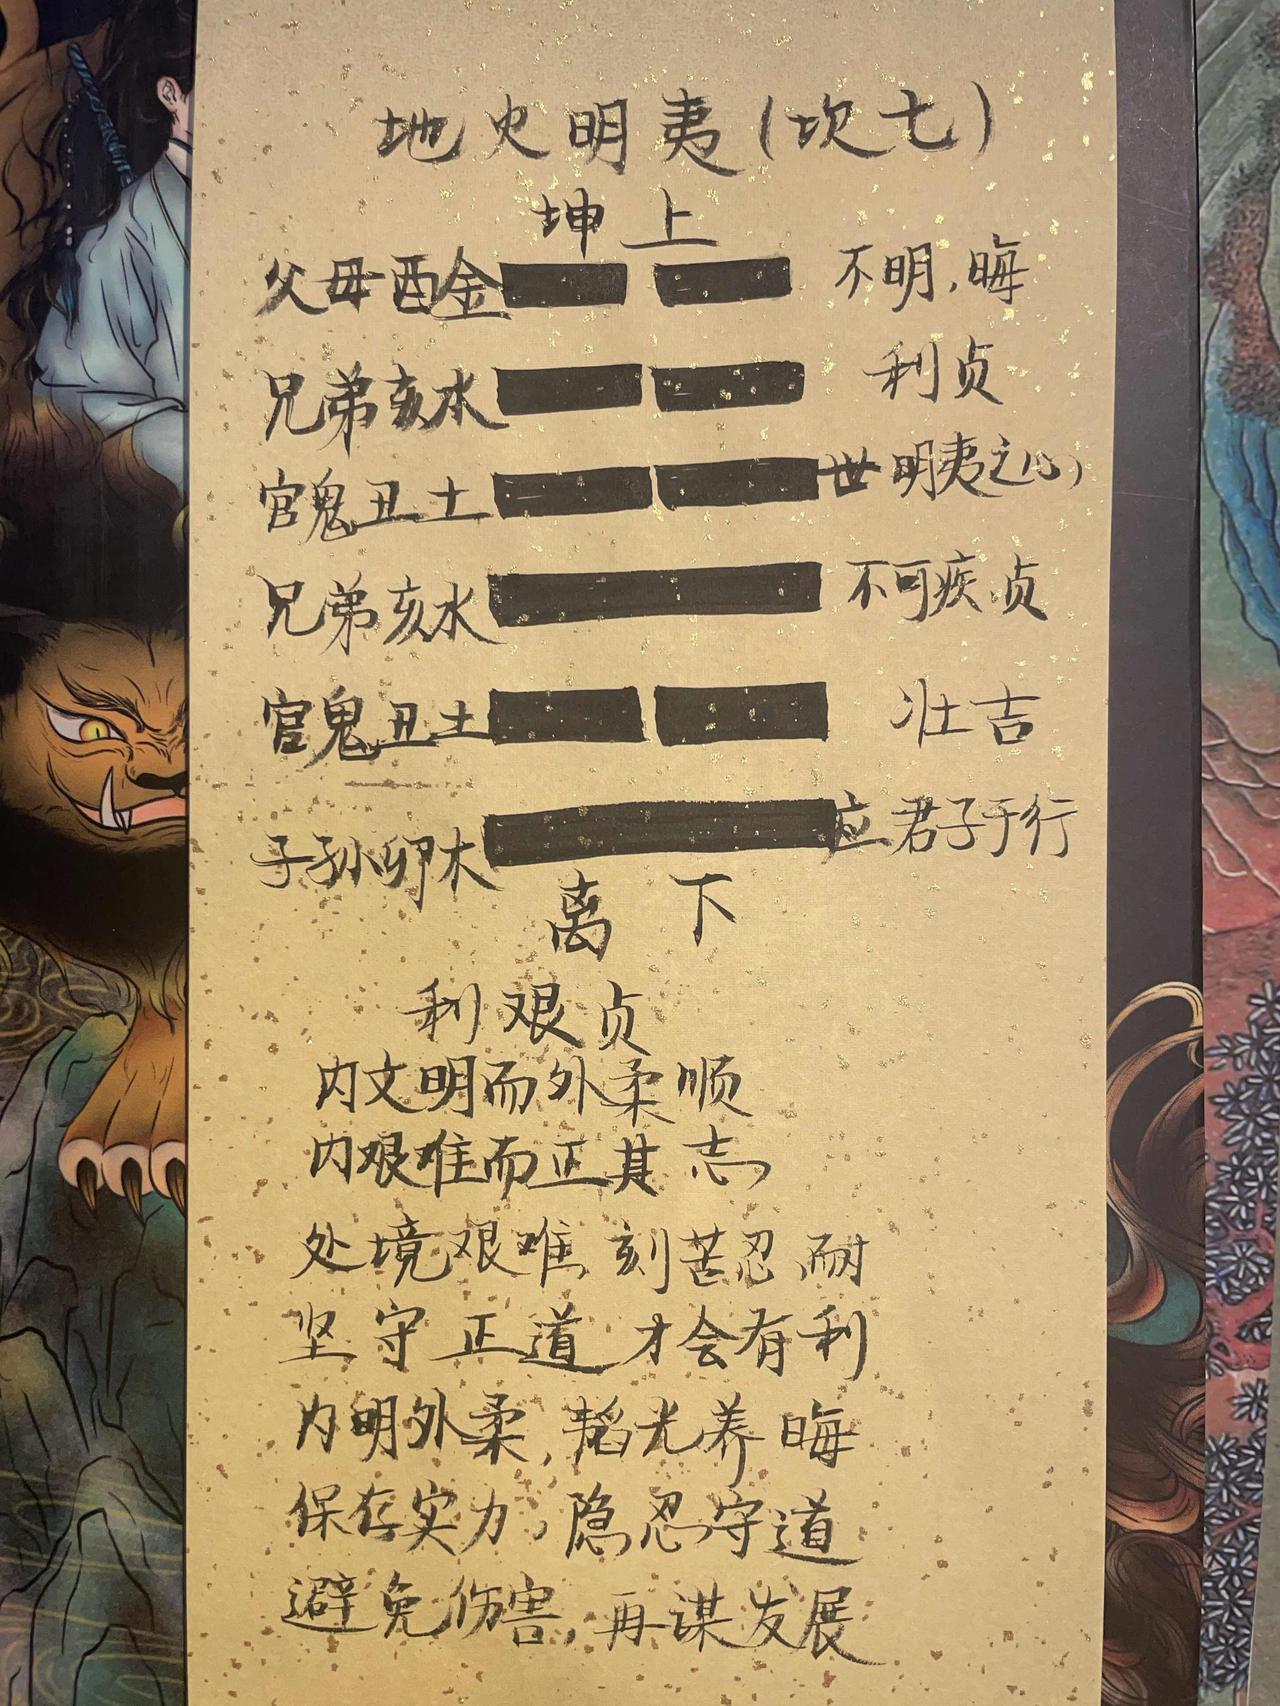 地火明夷(坎七)
坤上
父母酉金 不明,晦
兄弟亥水 利贞
官鬼丑土 世 明夷之心
兄弟亥水 不可疾贞
官鬼丑土 壮吉
子孙卯木 应 君子于行
离下
利艰贞
内文明而外柔顺
内艰难而正其志
处境艰难 刻苦忍耐
坚守正道 才会有利
内明外柔,韬光养晦
保存实力,隐忍守道
避免伤害,再谋发展